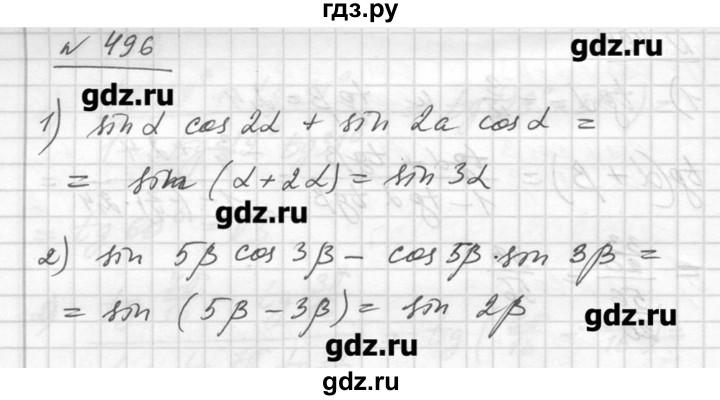 гдз.ру
№ 496
gdz.ru
gdz.ru
1) sin α cos 2α + sin 2a cos α =
= sin (α + 2α) = sin 3α
gdz.ru
2) sin 5β cos 3β - cos 5β · sin 3β =
= sin (5β - 3β) = sin 2β
gdz.ru
gdz.ru
gdz.ru